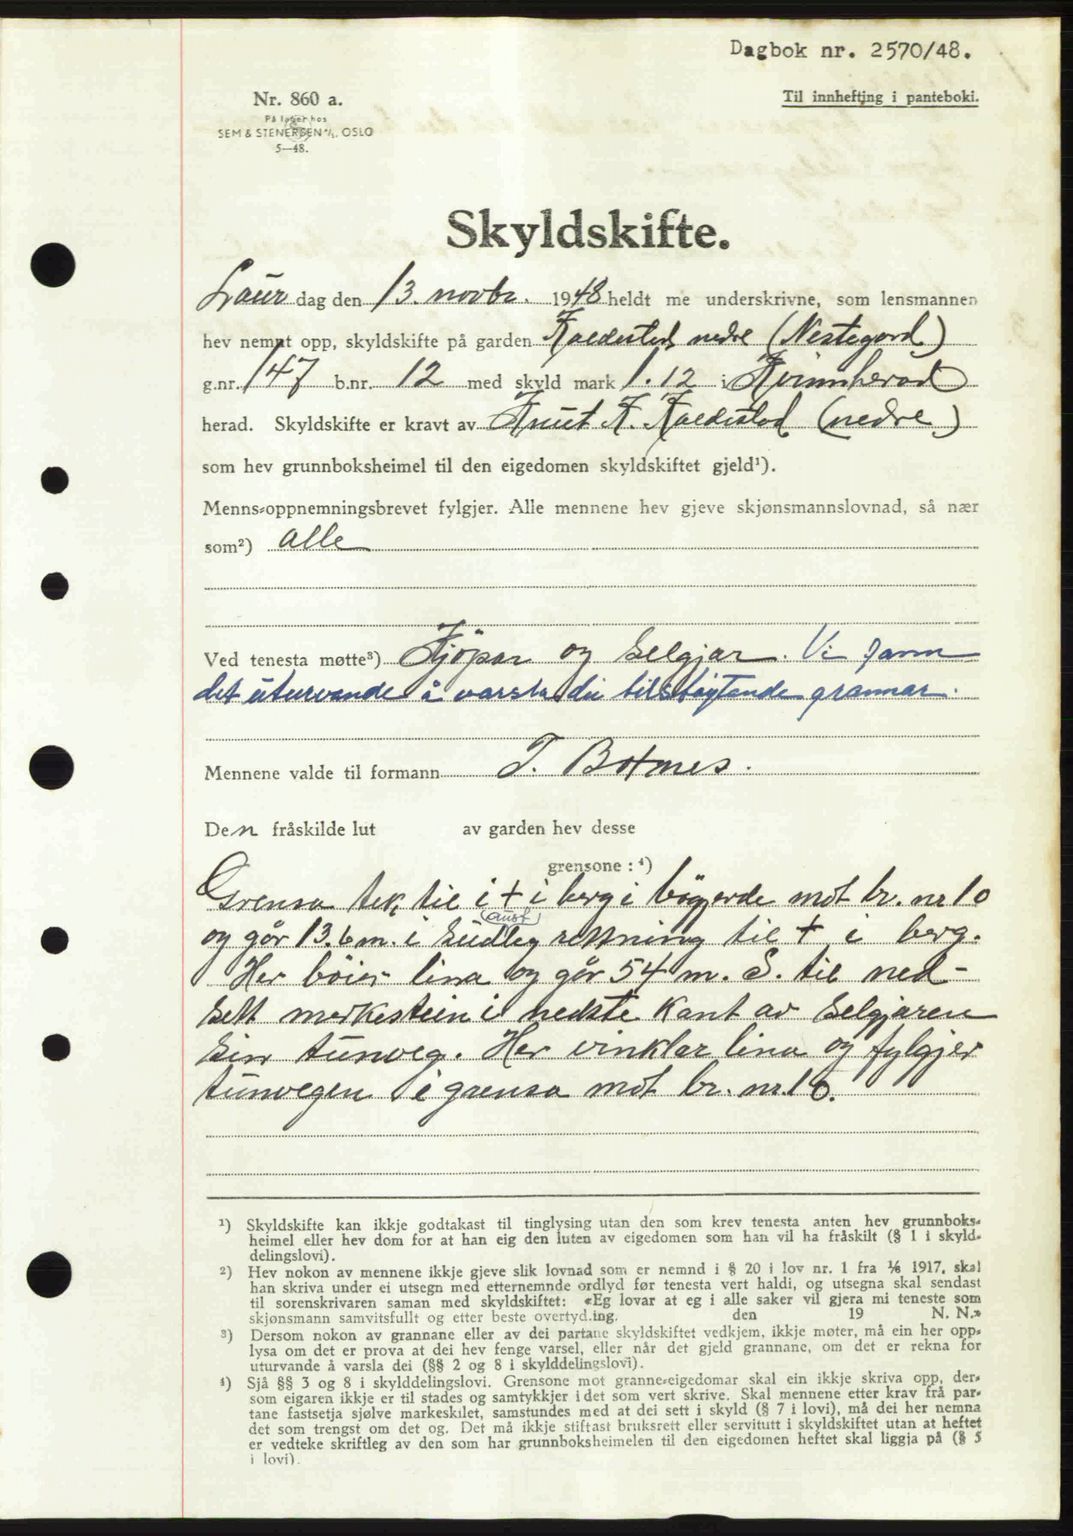 Dagbok nr. 2570/48.
Til innhefting i panteboki.
Nr. 860 a.
På lager hos
SEM & STENERSEN A/S, OSLO
5—48.
Skyldskifte.
Laur dag den 13. novbr. 1948 heldt me underskrivne, som lensmannen
hev nemnt opp, skyldskifte på garden Kaldestad nedre (Nestegard)
g.nr. 147 b.nr. 12 med skyld mark 1.12 i Kvinnherad
herad. Skyldskifte er kravt av Knut K. Kaldestad (nedre)
som hev grunnboksheimel til den eigedomen skyldskiftet gjeld¹).
Menns-oppnemningsbrevet fylgjer. Alle mennene hev gjeve skjønsmannslovnad, så nær
som²) alle
Ved tenesta møtte³) Kjöpar og Selgjar. Vi fann
det uturvande å varsla dei tilstøytande grannar.
Mennene valde til formann T. Botnes.
Den fråskilde lut av garden hev desse
grensone: ⁴)
Grensa tek til i + i berg i bögjerde mot br. nr 10
(aust)
og går 13.6 m. i sudleg retning til + i berg.
Her böier lina og går 54 m. S. til ned-
sett merkestein i nedste kant av Selgjaren
sin tunveg. Her vinklar lina og fylgjer
tunvegen i grensa mot br. nr. 10.
¹) Skyldskifte kan ikkje godtakast til tinglysing utan den som krev tenesta anten hev grunnboks-
heimel eller hev dom for at han eig den luten av eigedomen som han vil ha fråskilt (§ 1 i skyld-
delingslovi).
²) Hev nokon av mennene ikkje gjeve slik lovnad som er nemnd i § 20 i lov nr. 1 fra 1/6 1917, skal
han skriva under ei utsegn med etternemnde ordlyd før tenesta vert haldi, og utsegna skal sendast
til sorenskrivaren saman med skyldskiftet: «Eg lovar at eg i alle saker vil gjera mi teneste som
skjønsmann samvitsfullt og etter beste overtyding. den 19 N. N.»
³) Dersom nokon av grannane eller av dei partane skyldskiftet vedkjem, ikkje møter, må ein her opp-
lysa om det er prova at dei hev fenge varsel, eller når det gjeld grannane, om det er rekna for
uturvande å varsla dei (§§ 2 og 8 i skylddelingslovi).
⁴) Sjå §§ 3 og 8 i skylddelingslovi. Grensone mot granne-eigedomar skal ein ikkje skriva opp, der-
som eigaren ikkje er til stades og samtykkjer i det som vert skrive. Skal mennene etter krav frå par-
tane fastsetja sjølve markeskilet, samstundes med at dei sett i skyld (§ 7 i lovi), må dei her nemna
det som trengst om det og. Det må ikkje stiftast bruksrett eller servitutt i skyldskiftet utan at heftet
er vedteke skriftleg av den som har grunnboksheimelen til den eigedomen heftet skal liggja på (§ 5
i lovi).